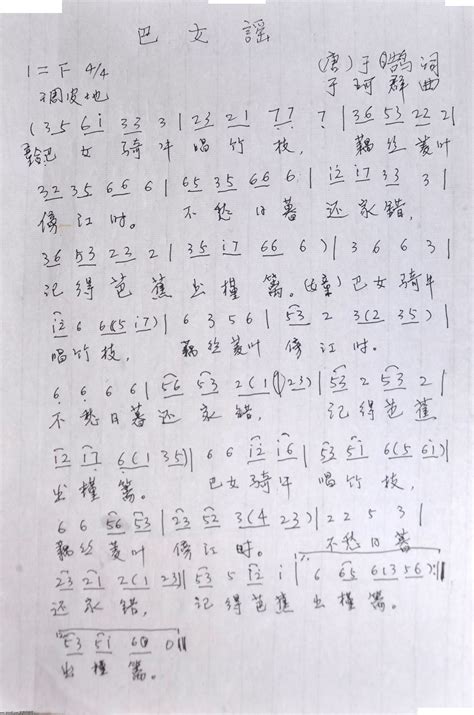 巴女謡
1=F 4/4 (唐)于鹄词
调皮地 于珂群曲
(35 6i 33 3 | 23 21 77 7 | 36 53 22 2 |
巴女骑牛唱竹枝, 藕丝菱叶
32 35 66 6 | 65 35 66 6 | i2 i7 33 3 |
傍江时。不愁日暮还家错,
36 53 23 2 | 35 i7 66 6) | 3 6 6 3 |
记得芭蕉出槿篱。(女童)巴女骑牛
i2 6 6(5 i7) | 6 3 5 6 | 53 2 3(2 35) |
唱竹枝, 藕丝菱叶傍江时。
6 6 6 6 | 56 53 2(1 23) | 53 2 53 2 |
不愁日暮还家错, 记得芭蕉
i2 i7 6(1 35) | 6 6 i2 i6 | 53 51 6(5 6i) |
出槿篱。巴女骑牛唱竹枝,
6 6 56 53 | 23 52 3(4 23) | 2 2 5 3 |
藕丝菱叶傍江时。不愁日暮
23 21 2(1 23) | 53 5 i2 i | 6 65 6(3 56) :||
还家错, 记得芭蕉出槿篱。
53 51 60 0 ||
出槿篱。